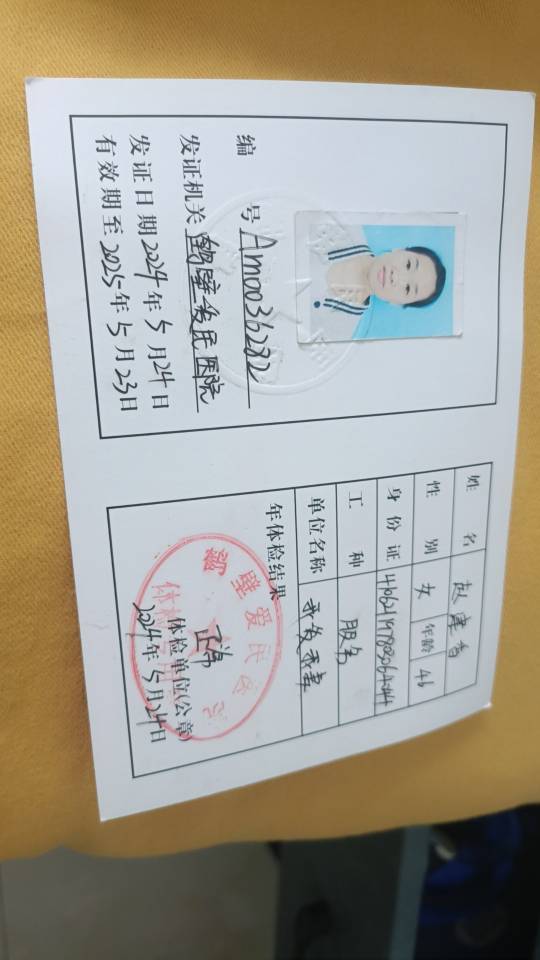 编 号 Am0036282
发证机关 鹤壁爱民医院
发证日期 2024年5月24日
有效期至 2025年5月23日
姓 名
性 别 女 年龄 46
身份证
工 种 服务
单位名称
年体检结果
正常
体检单位(公章)
2024年5月24日
鹤壁爱民医院